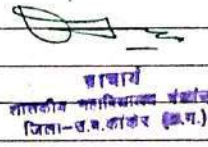 प्राचार्य
शासकीय महाविद्यालय
जिला-उ.ब.कांकेर (छ.ग.)